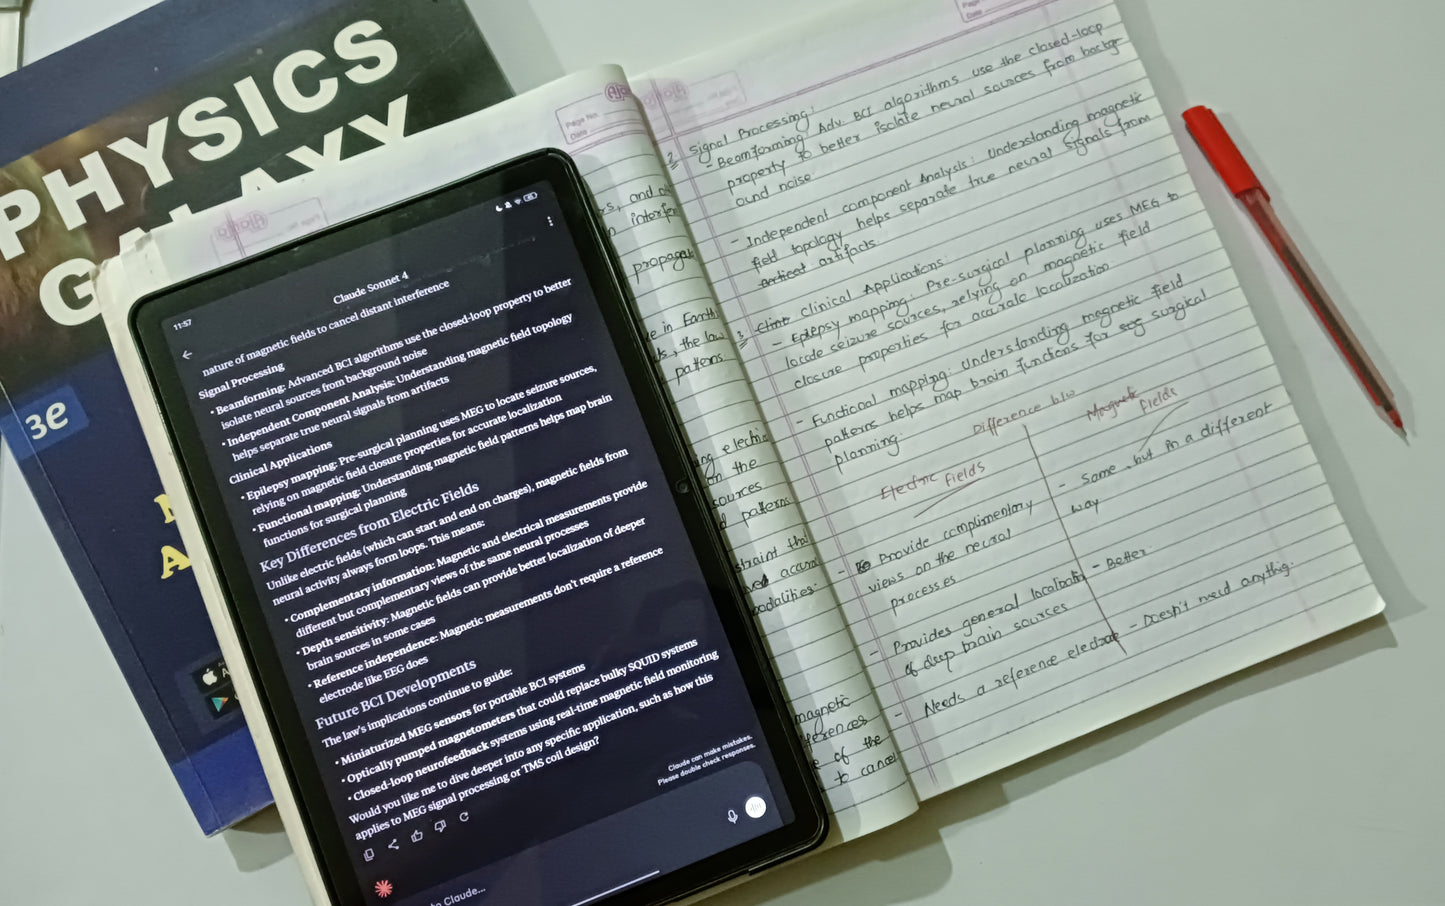 PHYSICS
GALAXY
3e
11:57
Claude Sonnet 4
nature of magnetic fields to cancel distant interference
Signal Processing
• Beamforming: Advanced BCI algorithms use the closed-loop property to better
isolate neural sources from background noise
• Independent Component Analysis: Understanding magnetic field topology
helps separate true neural signals from artifacts
Clinical Applications
• Epilepsy mapping: Pre-surgical planning uses MEG to locate seizure sources,
relying on magnetic field closure properties for accurate localization
• Functional mapping: Understanding magnetic field patterns helps map brain
functions for surgical planning
Key Differences from Electric Fields
Unlike electric fields (which can start and end on charges), magnetic fields from
neural activity always form loops. This means:
• Complementary information: Magnetic and electrical measurements provide
different but complementary views of the same neural processes
• Depth sensitivity: Magnetic fields can provide better localization of deeper
brain sources in some cases
• Reference independence: Magnetic measurements don't require a reference
electrode like EEG does
Future BCI Developments
The law's implications continue to guide:
• Miniaturized MEG sensors for portable BCI systems
• Optically pumped magnetometers that could replace bulky SQUID systems
• Closed-loop neurofeedback systems using real-time magnetic field monitoring
Would you like me to dive deeper into any specific application, such as how this
applies to MEG signal processing or TMS coil design?
Claude can make mistakes.
Please double check responses.
to Claude...
Page No.
Date
rs, and
interfer
propagat
ve in Earth
ks, the law
patterns
ing electric
on the
sources
d patterns
straint tha
ved accura
modalities.
magnetic
fferences
e of the
to cancel
Page
Date
2 Signal Processing:
- Beamforming: Adv. BCI algorithms use the closed-loop
property to better isolate neural sources from backgr-
ound noise.
- Independent component Analysis: Understanding magnetic
field topology helps separate true neural signals from
artifacts.
3 Clinical Applications:
- Epilepsy mapping: Pre-surgical planning uses MEG to
locate seizure sources, relying on magnetic field
closure properties for accurate localization.
- Functional mapping: Understanding magnetic field
patterns helps map brain functions for surgical
planning.
Difference b/w
Electric Fields
Magnetic Fields
- Provide complimentary
views on the neural
processes
- Same, but in a different
way
- Provides general localization
of deep brain sources
- Better
- Needs a reference electrode
- Doesn't need anythig.